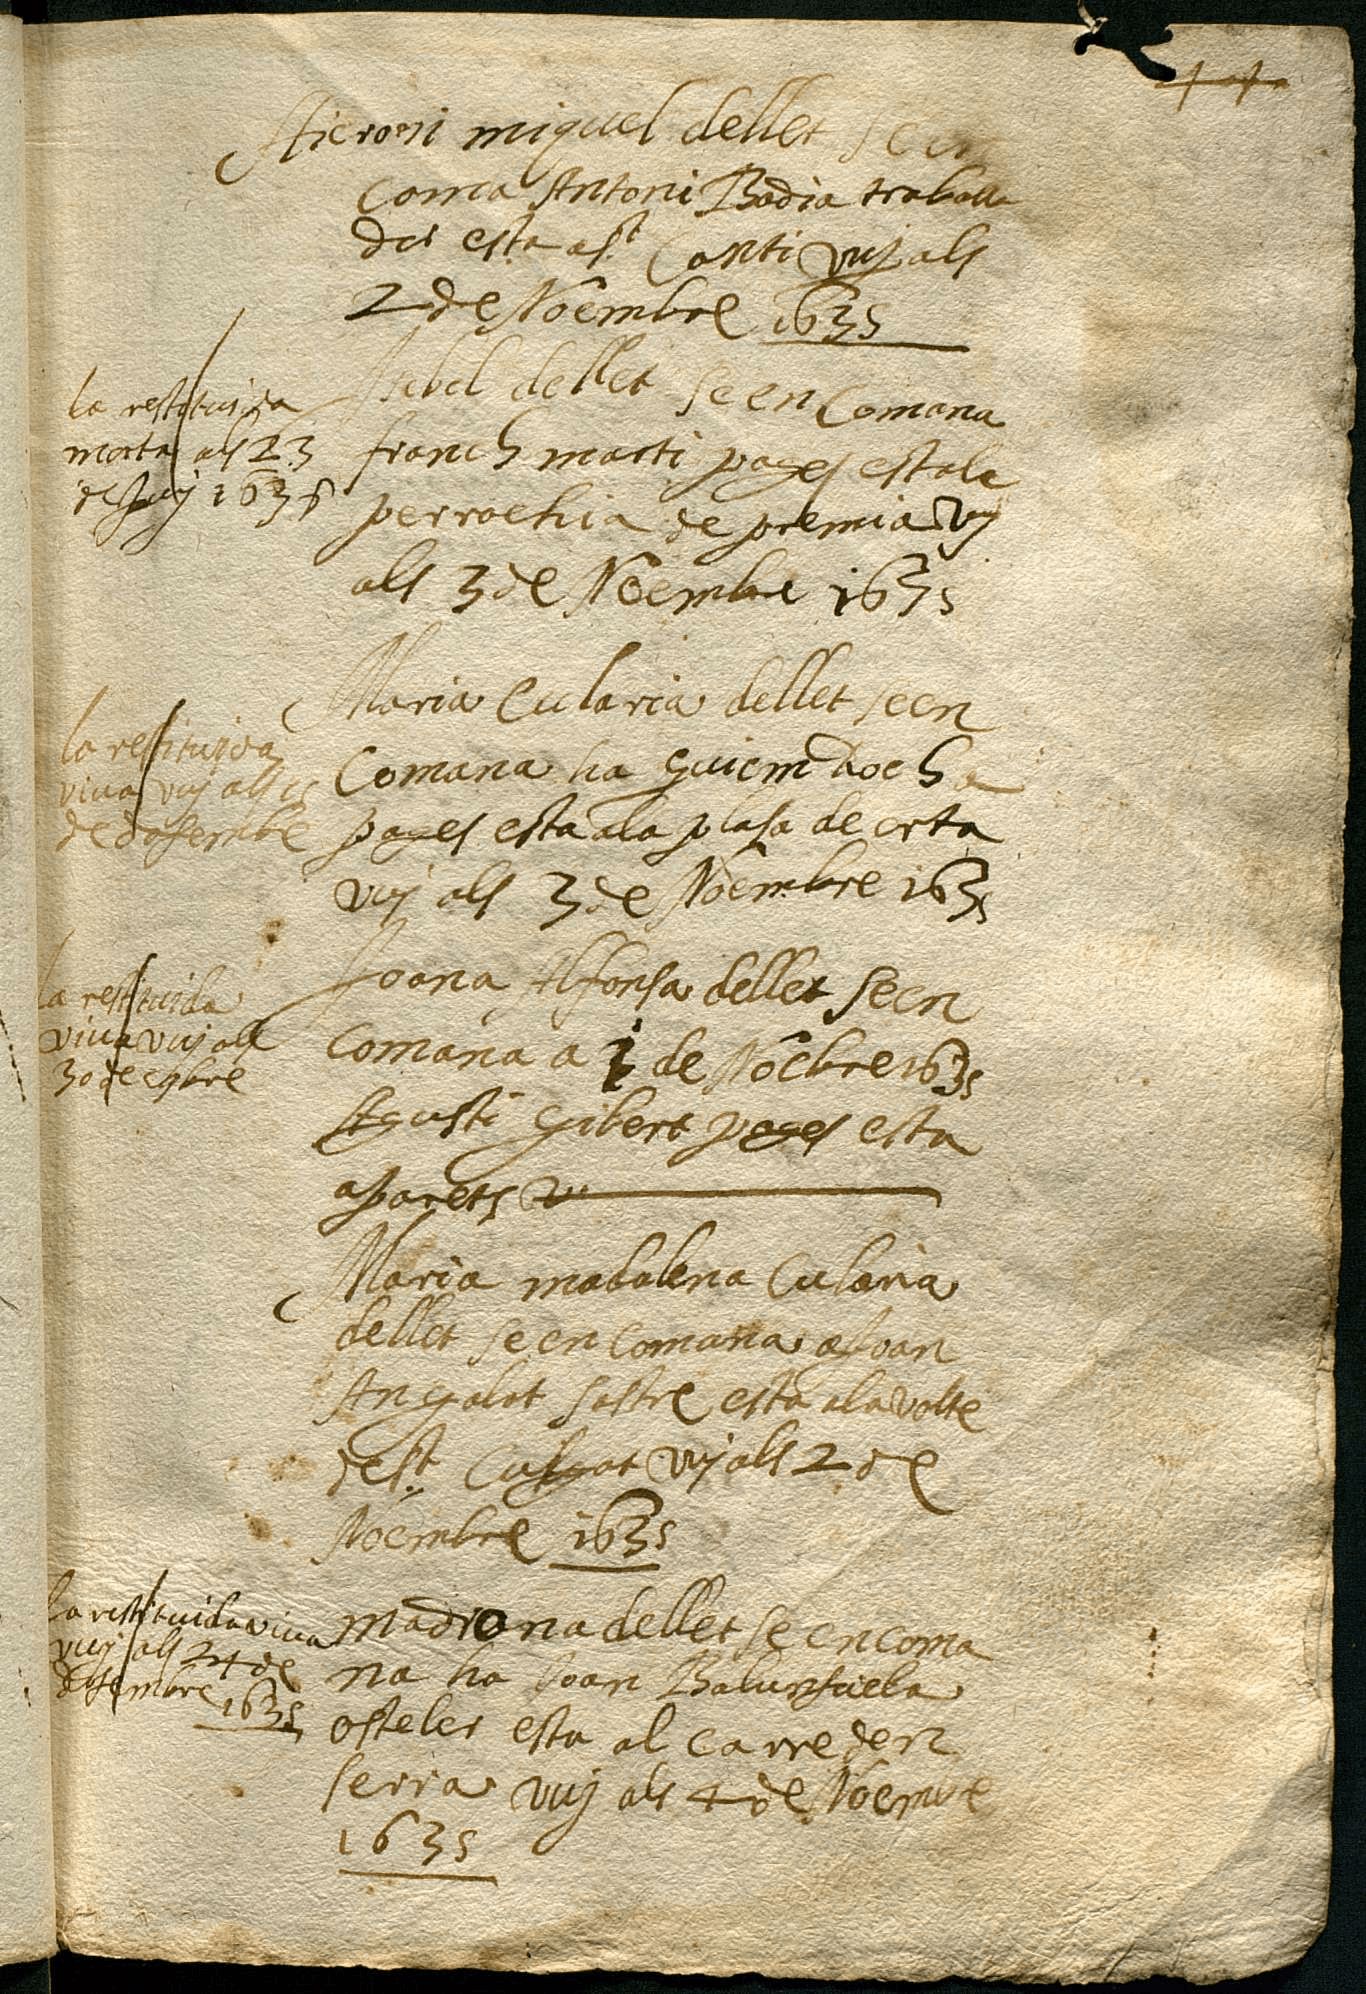 Hieroni miquel dellet se en
coma Antoni Badia traballa
dor esta a st. Conti vuj als
2 de Nõembre 1635
la restituida
morta als 23
de Juny 1636
Isabel dellet se en Comana
franch marti pages esta la
perrochia de premia vuj
als 3 de Nõembre 1635
la restituida
viua vuj als 15
de desembre
Maria Eularia dellet se en
Comana ha guiem
pages esta a la plasa de orta
vuj als 3 de Nõembre 1635
la restituida
viua vuj als
30 de
Joana Alfonsa dellet se en
Comana a 1 de Nõebre 1635
Agusti gibert pages esta
a parets
Maria madalena Eularia
dellet se en comana a Joan
Angalot sastre esta a la volte
de st. Cugat vuj als 2 de
Nõembre 1635
la restituida viua
vuj als 24 de
desembre
1635
madrona dellet se en coma
na ha Joan
osteler esta al carre den
serra vuj als 4 de Noembre
1635